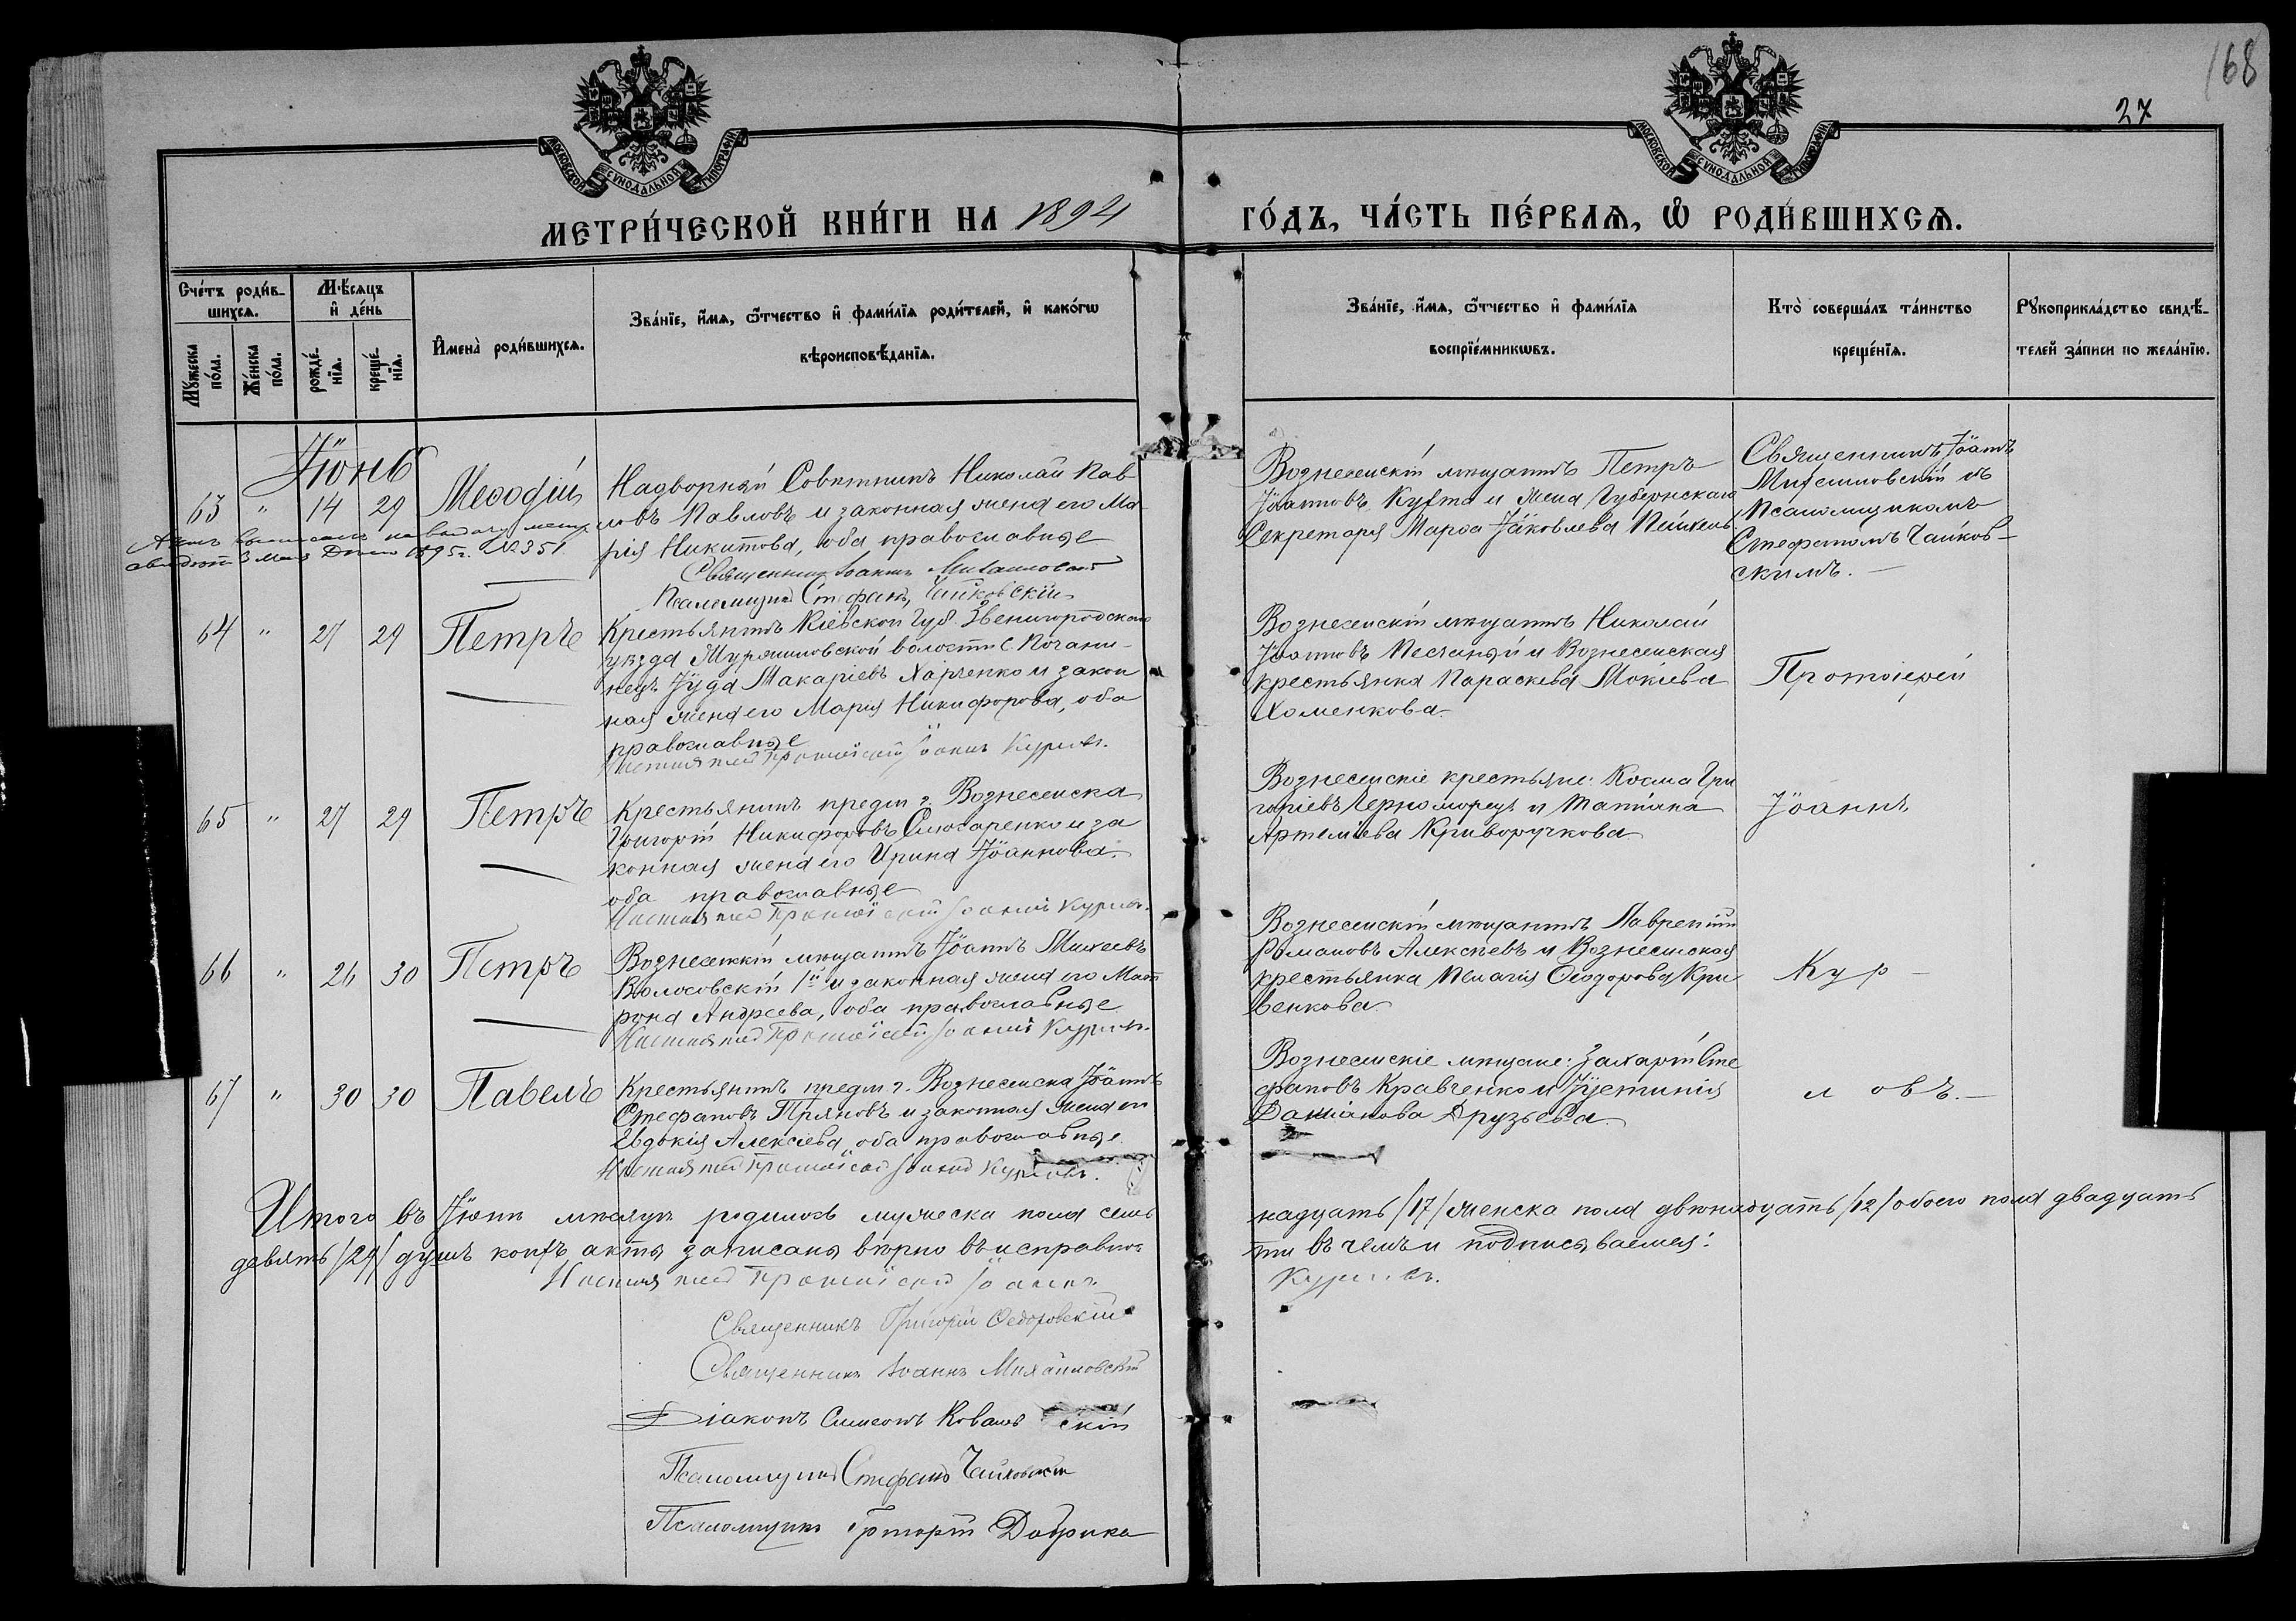 168
27
МОСКОВСКОЙ СѴНОДАЛЬНОЙ ТИПОГРАФІИ
МОСКОВСКОЙ СѴНОДАЛЬНОЙ ТИПОГРАФІИ
МЕТРИ́ЧЕСКОЙ КНИ́ГИ НА 1894
ГО́ДЪ, ЧА́СТЬ ПЕ́РВАѦ, Ѡ҆ РОДИ́ВШИХСѦ.
Счéтъ роди́в-
шихсѧ.
Мꙋ́жеска по́ла.
Жéнска по́ла.
Мѣ́сѧцъ
и҆ дéнь
рождé-
нїѧ.
крещé-
нїѧ.
И҆мена̀ роди́вшихсѧ.
Зва́нїе, и҆́мѧ, ѻ҆́тчество и҆ фами́лїѧ роди́телей, и҆ како́гѡ
вѣроисповѣ́данїѧ.
Зва́нїе, и҆́мѧ, ѻ҆́тчество и҆ фами́лїѧ
воспрїéмникѡвъ.
Кто̀ соверша́лъ та́инство
крещéнїѧ.
Рꙋкоприкла́дство свидѣ́-
телей за́писи по жела́нїю.
Іюнь
63 " 14 29 Меѳодій
Надворный Совѣтникъ Николай Пав-
ловъ Павловъ и законная жена его Ма-
рія Никитова, оба православные
Священникъ Іоаннъ Михайловскій
Псаломщикъ Стефанъ Чайковскій
на выдачу метр
3 Мая 1895г. № 351
Вознесенскій мѣщанинъ Петръ
Іоанновъ Кухта и жена Губернскаго
Секретаря Марѳа Іаковлева
Священникъ Іоаннъ
Михайловскій съ
Псаломщикомъ
Стефаномъ Чайков-
скимъ.
64 " 27 29 Петръ
Крестьянинъ Кіевской Губ. Звенигородскаго
уѣзда волости с.
Іуда Макаріевъ Харченко и закон
ная жена его Марія Никифорова, оба
православные
Настоятель Протоіерей Іоаннъ Курловъ.
Вознесенскій мѣщанинъ Николай
Іоанновъ Песчаный и Вознесенская
крестьянка Параскева Мокіева
Хоменкова.
Протоіерей
65 " 27 29 Петръ
Крестьянинъ предм. г. Вознесенска
Григорій Никифоровъ Слюсаренко и за
конная жена его Ирина Іоаннова.
оба православные
Настоятель Протоіерей Іоаннъ Курловъ.
Вознесенскіе крестьяне: Косма Гри
горіевъ Черноморецъ и Татіана
Артеміева Криворучкова
Іоаннъ
66 " 26 30 Петръ
Вознесенскій мѣщанинъ Іоаннъ Михеевъ
Волосовскій 1й и законная жена его Мат
рона Андреева, оба православные
Настоятель Протоіерей Іоаннъ Курловъ.
Вознесенскій мѣщанинъ Лаврентій
Романовъ Алексѣевъ и Вознесенская
крестьянка Пелагія Ѳеодорова Кри
венкова
Кур -
67 " 30 30 Павелъ
Крестьянинъ предм. г. Вознесенска Іоаннъ
Стефановъ Пряновъ и законная жена его
Евдокія Алексіева, оба православные
Настоятель Протоіерей Іоаннъ Курловъ.
Вознесенскіе мѣщане: Захарій Сте
фановъ Кравченко и Іустинія
Даміанова Друзьева.
л овъ.
Итого въ Іюнѣ мѣсяцѣ родилось мужеска пола семь
надцать /17/ женска пола двѣнадцать /12/ обоего пола двадцать
девять /29/ душъ коихъ акты записаны вѣрно въ исправнос
ти въ чемъ и подписываемся:
Настоятель Протоіерей Іоаннъ
Курловъ.
Священникъ Григорій Ѳедоровскій
Священникъ Іоаннъ Михайловскій
Діаконъ Симеонъ Ковалевскій
Псаломщикъ Стефанъ Чайковскій
Псаломщикъ Григорій